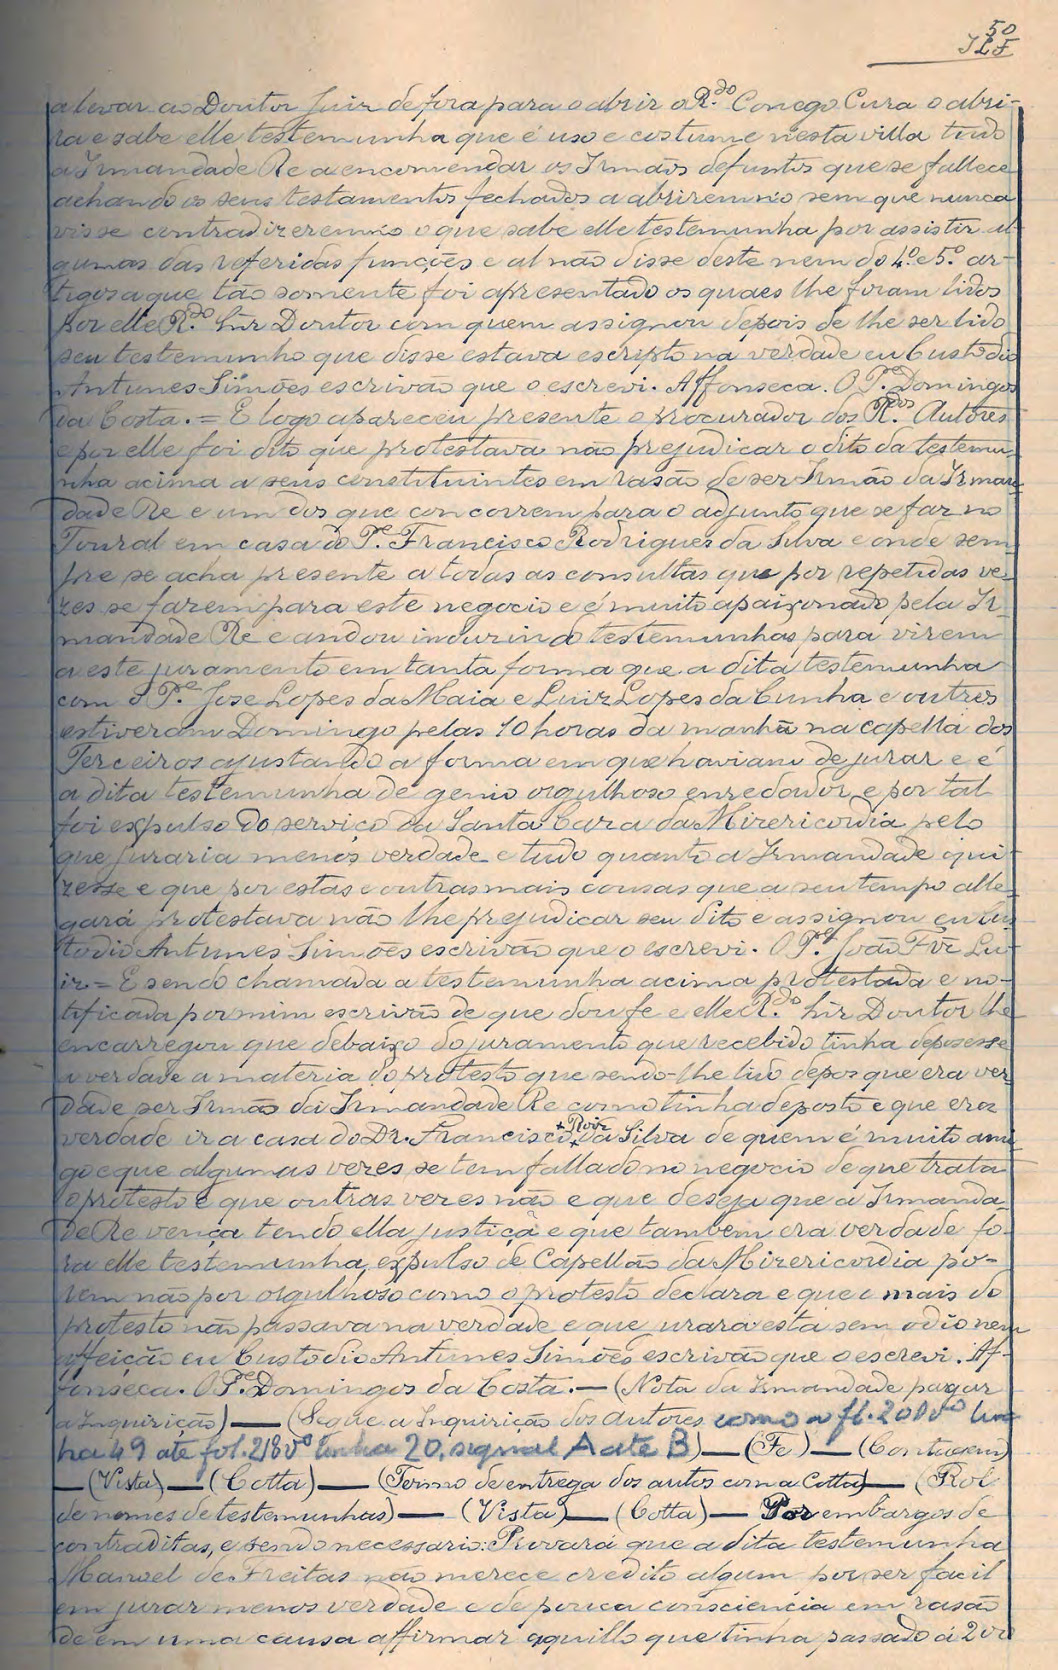 50
JLF
a levar ao Doutor Juiz de fora para o abrir o R.do Conego Cura o abri-
ra e sabe elle testemunha que é uso e costume nesta villa tudo
a Irmandade Re a encomendar os Irmãos defuntos que se fallece
achando os seus testamentos fechados a abriremno sem que nunca
visse contradizeremno o que sabe elle testemunha por assistir al-
gumas das referidas funções e al não disse deste nem do 4.º e 5.º ar-
tigos a que tão somente foi apresentado os quaes lhe foram lidos
por elle R.do Snr Doutor com quem assignou depois de lhe ser lido
seu testemunho que disse estava escripto na verdade eu Custodio
Antunes Simões escrivão que o escrevi. Affonseca. O P.e Domingos
da Costa. = E logo apareceu presente o procurador dos R.dos Autores
e por elle foi dito que protestava não prejudicar o dito da testemu-
nha acima a seus constituintes em rasão de ser Irmão da Irman-
dade Re e um dos que concorrem para o adjunto que se faz no
Toural em casa do P.e Francisco Rodrigues da Silva e onde sem-
pre se acha presente a todas as consultas que por repetidas ve-
zes se fazem para este negocio e é muito apaixonado pela Ir-
mandade Re e andou induzindo testemunhas para virem
a este juramento em tanta forma que a dita testemunha
com o P.e Jose Lopes da Maia e Luiz Lopes da Cunha e outros
estiveram Domingo pelas 10 horas da manhã na capella dos
Terceiros ajustando a forma em que haviam de jurar e é
a dita testemunha de genio orgulhoso enredador e por tal
foi expulso do serviço da Santa Caza da Mizericordia pelo
que juraria menos verdade e tudo quanto a Irmandade qui-
zesse e que por estas e outras mais cousas que a seu tempo alle-
gará protestava não lhe prejudicar seu dito e assignou eu Cus-
todio Antunes Simões escrivão que o escrevi. O P.e João Frz Lu-
iz = E sendo chamada a testemunha acima protestada e no-
tificada por mim escrivão de que dou fe e elle R.do Snr Doutor lhe
encarregou que debaixo do juramento que recebido tinha depozesse
a verdade a materia do protesto que sendo-lhe lido depos que era ver-
dade ser Irmão da Irmandade Re como tinha deposto e que era
verdade ir a casa do Dr. Francisco + Roiz + da Silva de quem é muito ami-
go e que algumas vezes se tem fallado no negocio de que trata
o protesto e que outras vezes não e que deseja que a Irmanda-
de Re vença tendo ella justiça e que tambem era verdade fo-
ra elle testemunha expulso de Capellão da Mizericordia po-
rem não por orgulhoso como o protesto declara e que o mais do
protesto não passava na verdade e que jurara esta sem odio nem
affeição eu Custodio Antunes Simões escrivão que o escrevi. Af-
fonseca. O P.e Domingos da Costa. — (Nota da Irmandade pagar
a Inquirição) — (Segue a Inquirição dos autores como a fl. 208 vº lin-
ha 49 até fol. 218 vº linha 20, signal A ate B) — (Fe) — (Contagem)
— (Vista) — (Cotta) — (Termo de entrega dos autos com a Cotta) — (Rol
de nomes de testemunhas) — (Vista) — (Cotta) — Por embargos de
contraditas, e sendo necessario: Provará que a dita testemunha
Manoel de Freitas não merece credito algum por ser facil
em jurar menos verdade e de pouca consciencia em rasão
de em uma causa affirmar aquillo que tinha passado á 200